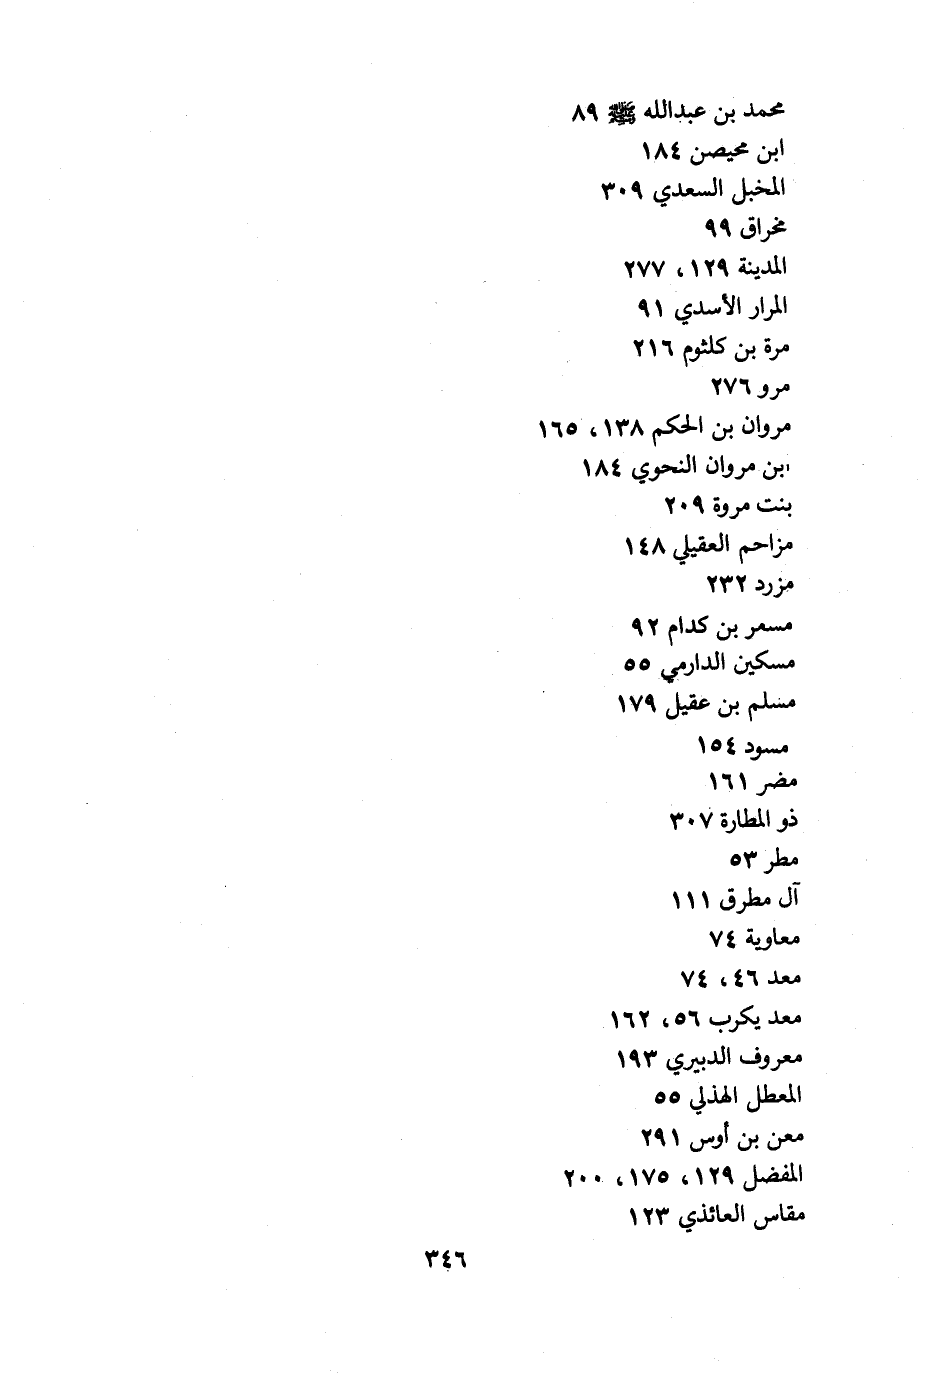 محمد بن عبدالله ﷺ ٨٩
ابن محيصن ١٨٤
المخبل السعدي ٣٠٩
مخراق ٩٩
المدينة ١٢٩، ٢٧٧
المرار الأسدي ٩١
مرة بن كلثوم ٢١٦
مرو ٢٧٦
مروان بن الحكم ١٣٨، ١٦٥
ابن مروان النحوي ١٨٤
بنت مروة ٢٠٩
مزاحم العقيلي ١٤٨
مزرد ٢٣٢
مسعر بن كدام ٩٢
مسكين الدارمي ٥٥
مسلم بن عقيل ١٧٩
مسود ١٥٤
مضر ١٦١
ذو المطارة ٣٠٧
مطر ٥٣
آل مطرق ١١١
معاوية ٧٤
معد ٤٦، ٧٤
معد يكرب ٥٦، ١٦٢
معروف الدبيري ١٩٣
المعطل الهذلي ٥٥
معن بن أوس ٢٩١
المفضل ١٢٩، ١٧٥، ٢٠٠
مقاس العائذي ١٢٣
٣٤٦